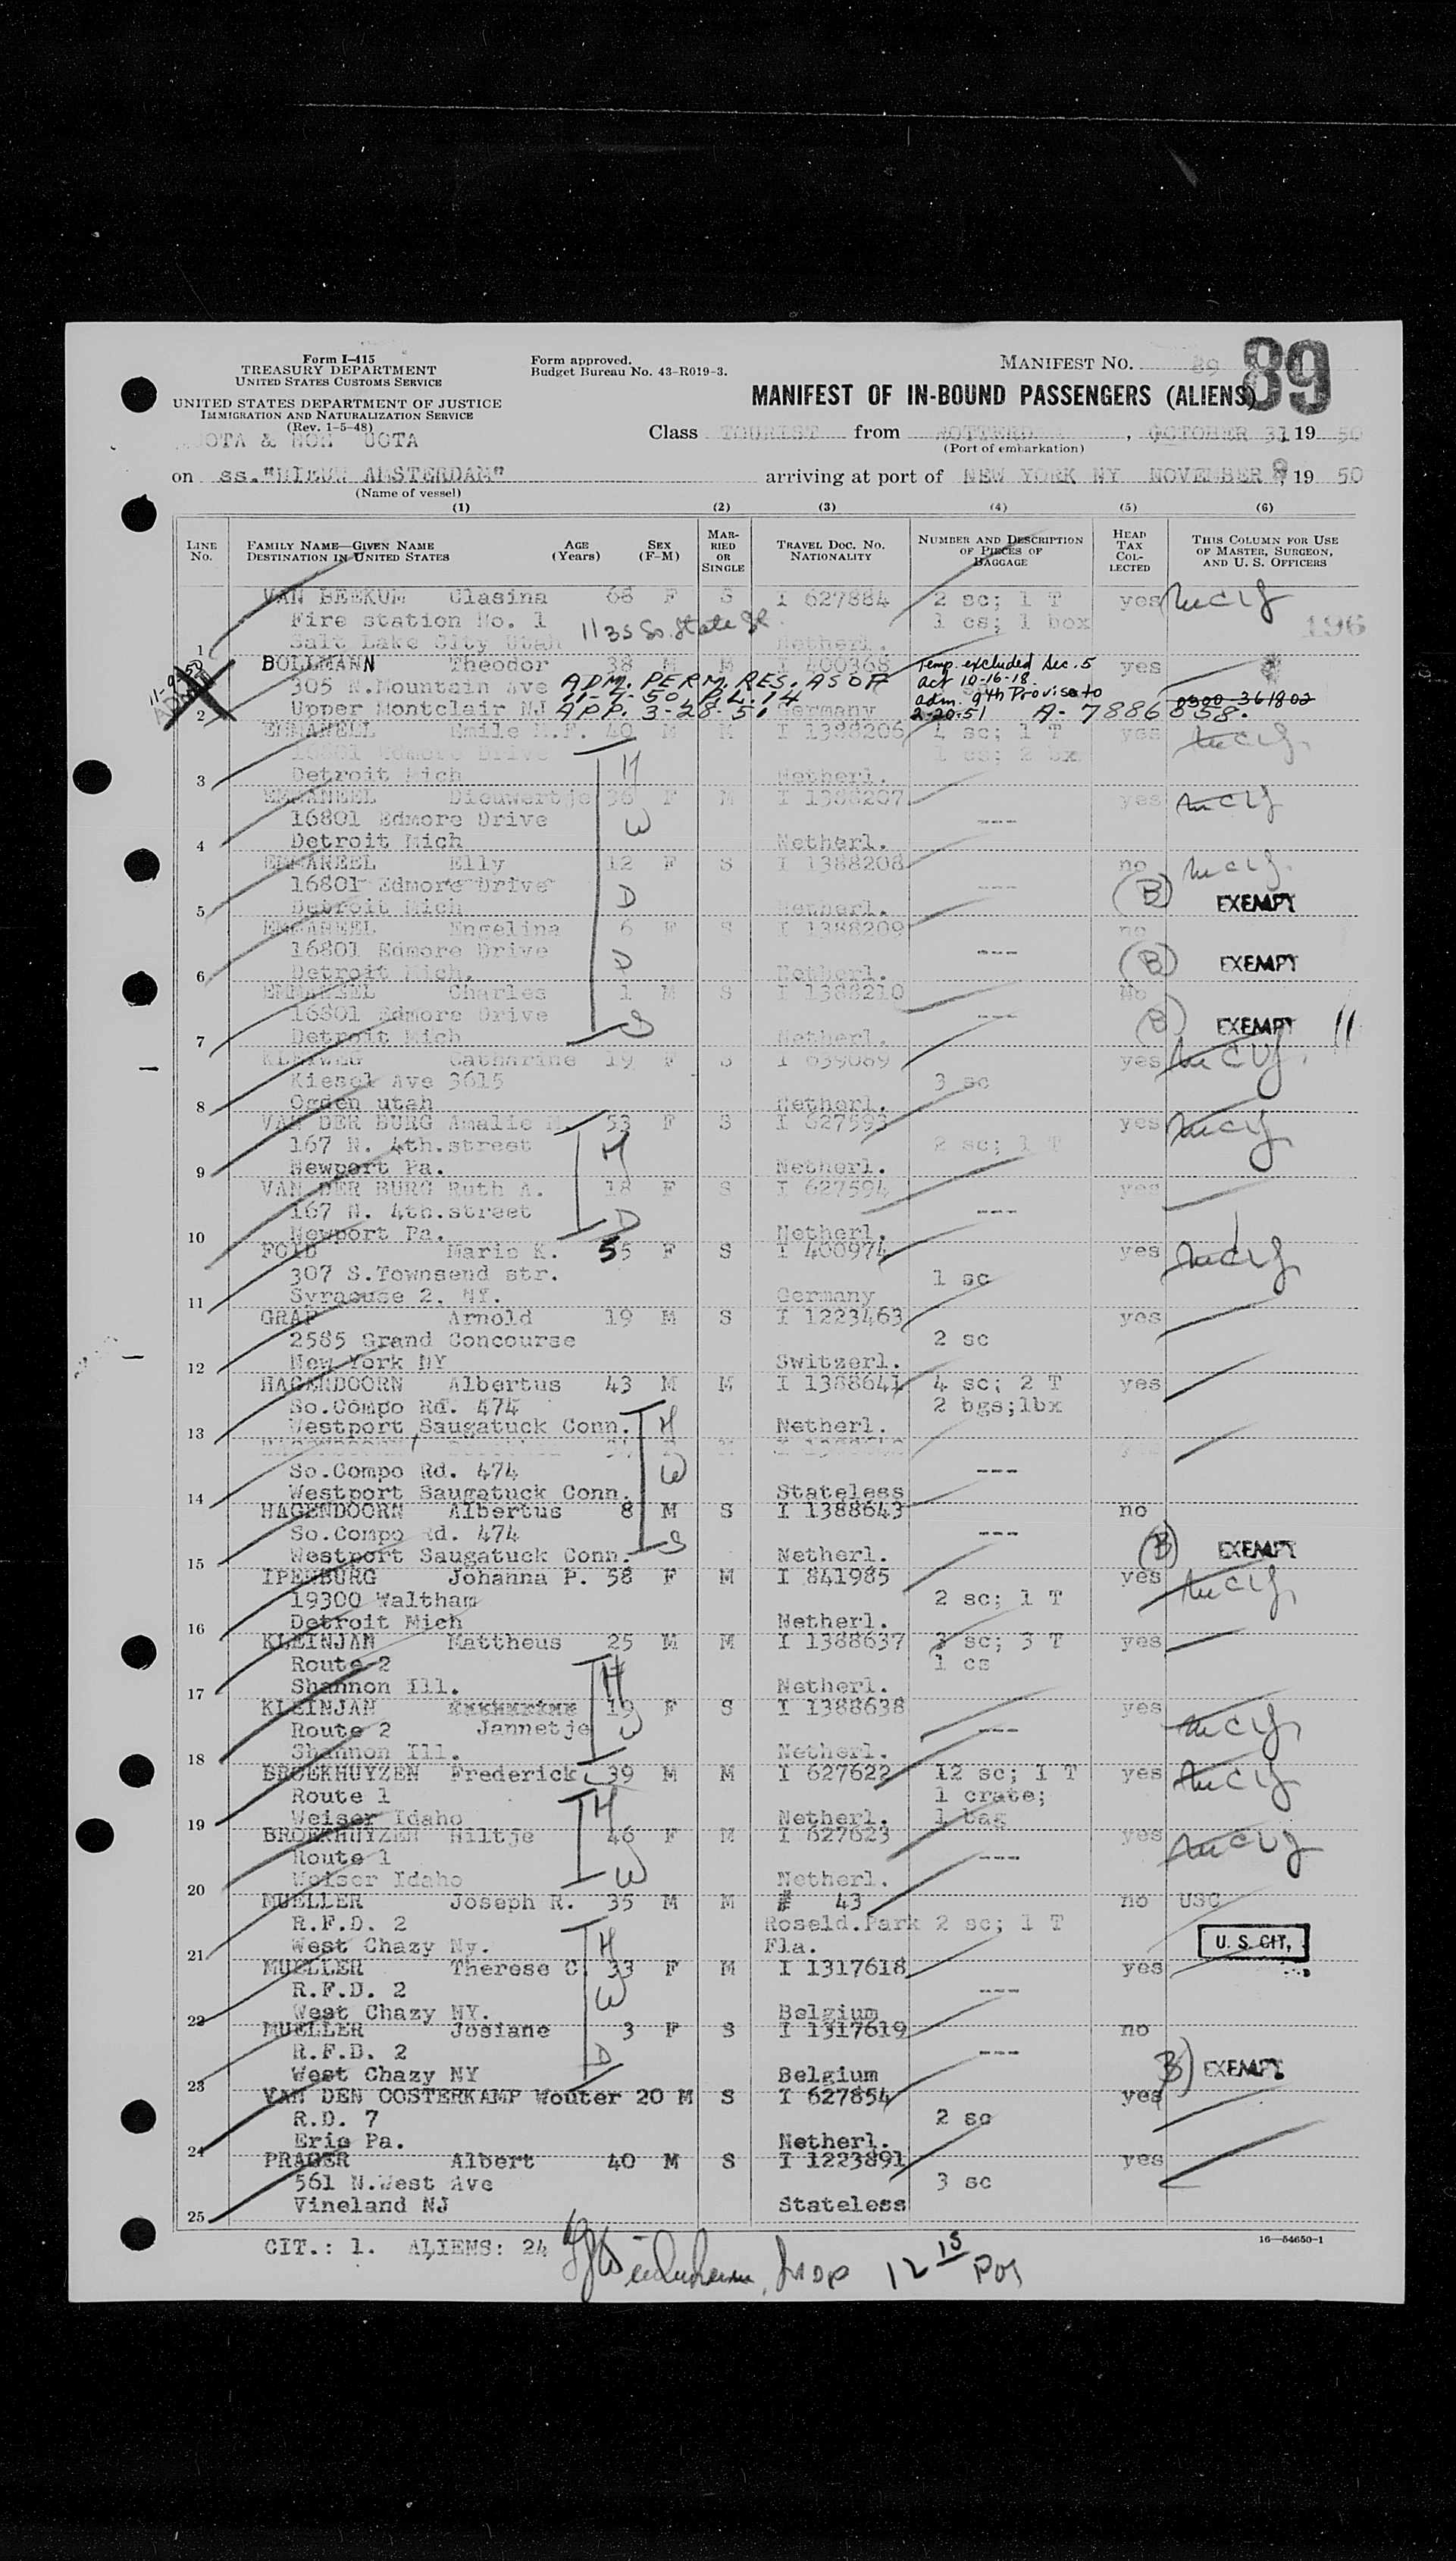 Form I-415
TREASURY DEPARTMENT
UNITED STATES CUSTOMS SERVICE
UNITED STATES DEPARTMENT OF JUSTICE
IMMIGRATION AND NATURALIZATION SERVICE
(Rev. 1-5-48)
Form approved.
Budget Bureau No. 43-R019-3.
MANIFEST NO. 89
89
MANIFEST OF IN-BOUND PASSENGERS (ALIENS)
Class TOURIST from , OCTOBER 31 19 50
(Port of embarkation)
on ss. AMSTERDAM" arriving at port of NEW YORK NY NOVEMBER 19 50
(Name of vessel)
(1) (2) (3) (4) (5) (6)
LINE No. FAMILY NAME—GIVEN NAME DESTINATION IN UNITED STATES AGE (Years) SEX (F-M) MARRIED OR SINGLE TRAVEL DOC. No. NATIONALITY NUMBER AND DESCRIPTION OF PIECES OF BAGGAGE HEAD TAX COLLECTED THIS COLUMN FOR USE OF MASTER, SURGEON, AND U. S. OFFICERS
VAN BEEKUM Clasina 68 F S I 627884 2 sc; 1 T yes
Fire station No. 1 1135 So. State St 1 cs; 1 box 196
1 Salt Lake City Utah Netherl.
BOLLMANN Theodor 38 M M I 400368 Temp. excluded Sec. 5 yes
305 N.Mountain Ave ADM. PERM. RES. AS OF act 10-16-18.
2 Upper Montclair NJ APP. 3-28-51 Germany adm. 9th Proviso to 2-20-51 A-7886858. 0300-361802
EMMANEEL Emile M.F. 40 M M I 1388206 4 sc; 1 T yes
Edmore Drive 1 cs; 2 bx
3 Detroit Mich H Netherl.
EMMANEEL Dieuwertje 36 F M I 1388207 yes
16801 Edmore Drive W ---
4 Detroit Mich Netherl.
EMMANEEL Elly 12 F S I 1388208 no
16801 Edmore Drive D --- (B) EXEMPT
5 Detroit Mich Netherl.
EMMANEEL Engelina 6 F S I 1388209 no
16801 Edmore Drive D --- (B) EXEMPT
6 Detroit Mich. Netherl.
EMMANEEL Charles 1 M S I 1388210 No
16801 Edmore Drive --- (B) EXEMPT
7 Detroit Mich S Netherl.
KLEIWEG Catharine 19 F S I 639069 yes
Kiesel Ave 3615 3 sc
8 Ogden utah Netherl.
VAN DER BURG Amalie 53 F S I 627593 yes
167 N. 4th.street H 2 sc; 1 T
9 Newport Pa. Netherl.
VAN DER BURG Ruth A. 18 F S I 627594 yes
167 N. 4th.street D ---
10 Newport Pa. Netherl.
Marie K. 55 F S I 400974 yes
307 S.Townsend str. 1 sc
11 Syracuse 2. NY. Germany
GRAF Arnold 19 M S I 1223463 yes
2585 Grand Concourse 2 sc
12 New York NY Switzerl.
HAGENDOORN Albertus 43 M M I 1388641 4 sc; 2 T yes
So.Compo Rd. 474 2 bgs;1bx
13 Westport Saugatuck Conn. H Netherl.
So.Compo Rd. 474 W ---
14 Westport Saugatuck Conn. Stateless
HAGENDOORN Albertus 8 M S I 1388643 no
So.Compo Rd. 474 --- (B) EXEMPT
15 Westport Saugatuck Conn. S Netherl.
IPENBURG Johanna P. 58 F M I 841985 yes
19300 Waltham 2 sc; 1 T
16 Detroit Mich Netherl.
KLEINJAN Mattheus 25 M M I 1388637 3 sc; 3 T yes
Route 2 H 1 cs
17 Shannon Ill. Netherl.
KLEINJAN 19 F S I 1388638 yes
Route 2 Jannetje W ---
18 Shannon Ill. Netherl.
BROEKHUYZEN Frederick 39 M M I 627622 12 sc; 1 T yes
Route 1 H 1 crate;
19 Weiser Idaho Netherl. 1 bag
BROEKHUYZEN Hiltje 46 F M I 627623 yes
Route 1 W ---
20 Weiser Idaho Netherl.
MUELLER Joseph R. 35 M M # 43 no USC
R.F.D. 2 H Roseld.Park 2 sc; 1 T
21 West Chazy Ny. Fla. U. S. CIT,
MUELLER Therese C. 33 F M I 1317618 yes
R.F.D. 2 W ---
22 West Chazy NY. Belgium
MUELLER Josiane 3 F S I 1317619 no
R.F.D. 2 D --- (B) EXEMPT
23 West Chazy NY Belgium
VAN DEN OOSTERKAMP Wouter 20 M S I 627854 yes
R.D. 7 2 sc
24 Erie Pa. Netherl.
PRAGER Albert 40 M S I 1223891 yes
561 N.West Ave 3 sc
25 Vineland NJ Stateless
CIT.: 1. ALIENS: 24
16—54650-1
12 15